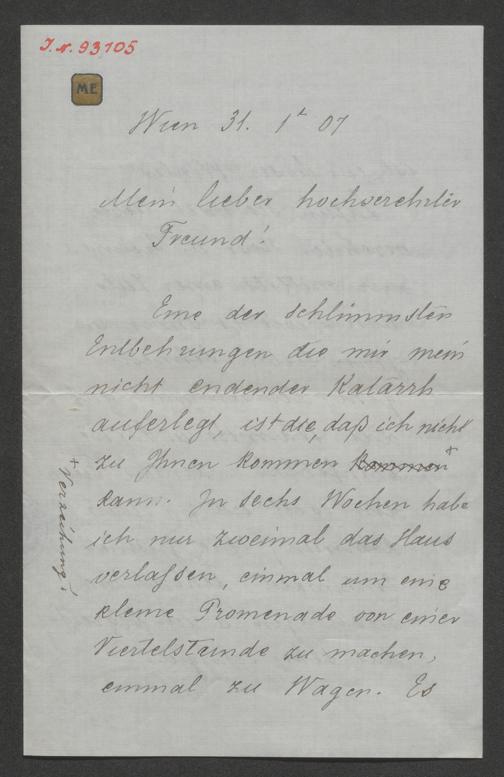 I. N. 93105
ME
Wien 31. 1ᵗ 07
Mein lieber hochverehrter
Freund!
Eine der schlimmsten
Entbehrungen die mir mein
nicht endender Katarrh
auferlegt, ist die, daß ich nicht
zu Ihnen kommen kommen*
kann. In sechs Wochen habe
ich nur zweimal das Haus
verlassen, einmal um eine
kleine Promenade von einer
Viertelstunde zu machen,
einmal zu Wagen. Es
* Verzeihung!